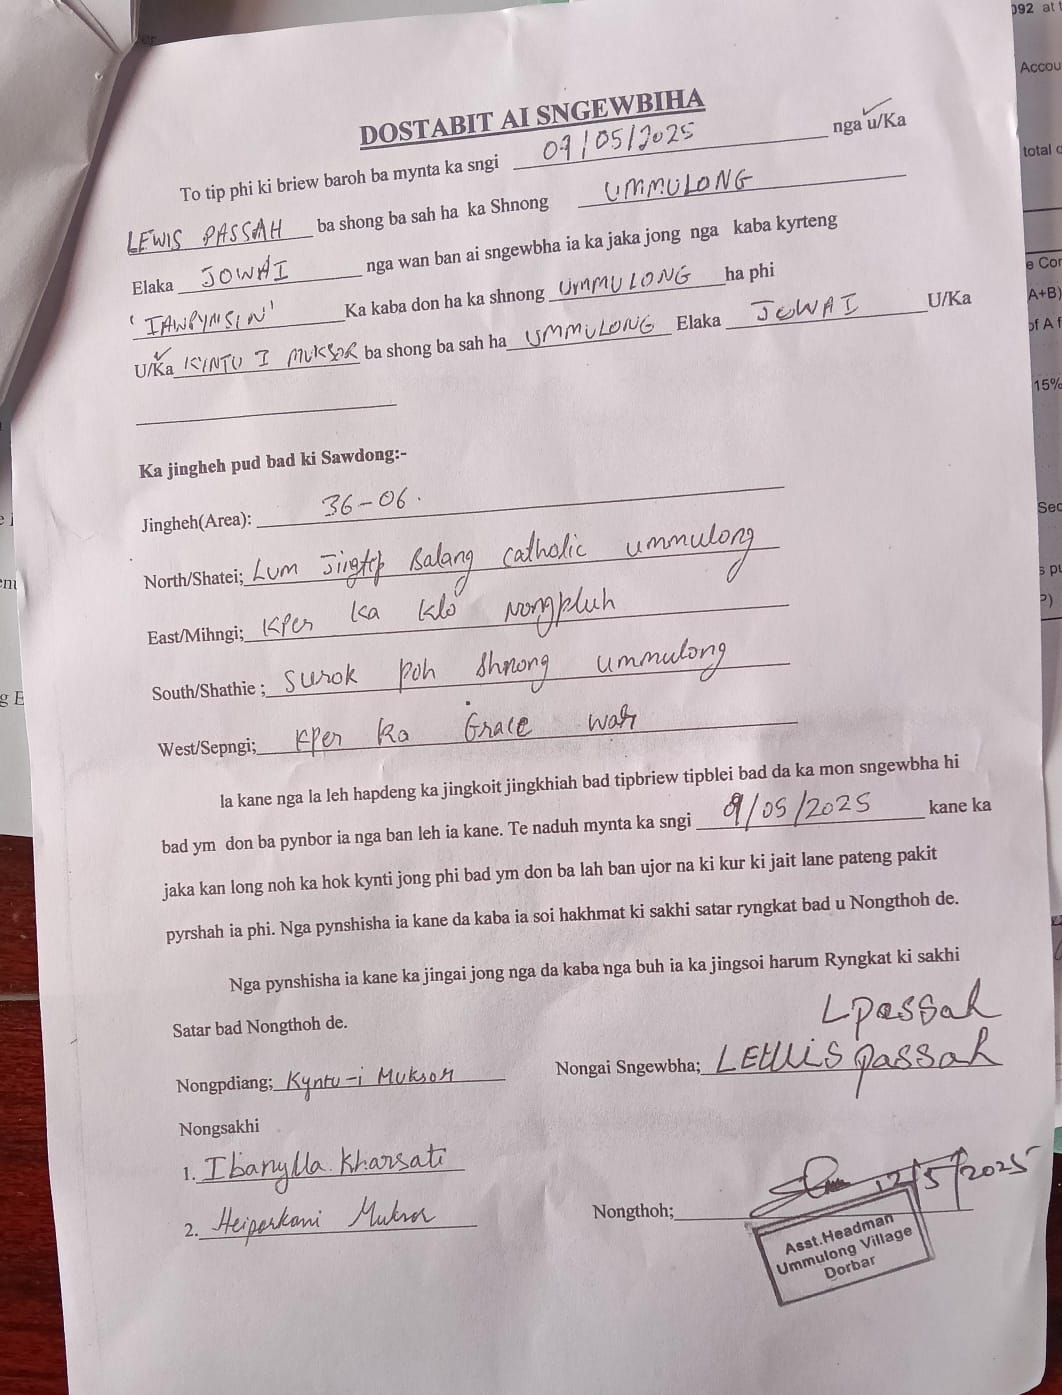 DOSTABIT AI SNGEWBIHA
To tip phi ki briew baroh ba mynta ka sngi 09/05/2025 nga u/Ka
LEWIS PASSAH ba shong ba sah ha ka Shnong UMMULONG
Elaka JOWAI nga wan ban ai sngewbha ia ka jaka jong nga kaba kyrteng
'IAWPYNSIN' Ka kaba don ha ka shnong UMMULONG ha phi
U/Ka KINTU I MUKSOR ba shong ba sah ha UMMULONG Elaka JOWAI U/Ka
Ka jingheh pud bad ki Sawdong:-
Jingheh(Area): 36-06.
North/Shatei; Lum Jingtep Balang catholic ummulong
East/Mihngi; Kper ka klo Nongpluh
South/Shathie ; Surok poh Shnong ummulong
West/Sepngi; Kper ka Grace wah
Ia kane nga la leh hapdeng ka jingkoit jingkhiah bad tipbriew tipblei bad da ka mon sngewbha hi
bad ym don ba pynbor ia nga ban leh ia kane. Te naduh mynta ka sngi 9/05/2025 kane ka
jaka kan long noh ka hok kynti jong phi bad ym don ba lah ban ujor na ki kur ki jait lane pateng pakit
pyrshah ia phi. Nga pynshisha ia kane da kaba ia soi hakhmat ki sakhi satar ryngkat bad u Nongthoh de.
Nga pynshisha ia kane ka jingai jong nga da kaba nga buh ia ka jingsoi harum Ryngkat ki sakhi
Satar bad Nongthoh de.
LPassah
Nongpdiang; Kyntu-i Muksor Nongai Sngewbha; LEWIS passah
Nongsakhi
1. Ibanylla Kharsati
2. Heiparkani Muksor Nongthoh; 12/5/2025
Asst.Headman
Ummulong Village
Dorbar
092 at
Accou
total
e Cor
A+B)
of A f
15%
Sec
s pu
g E